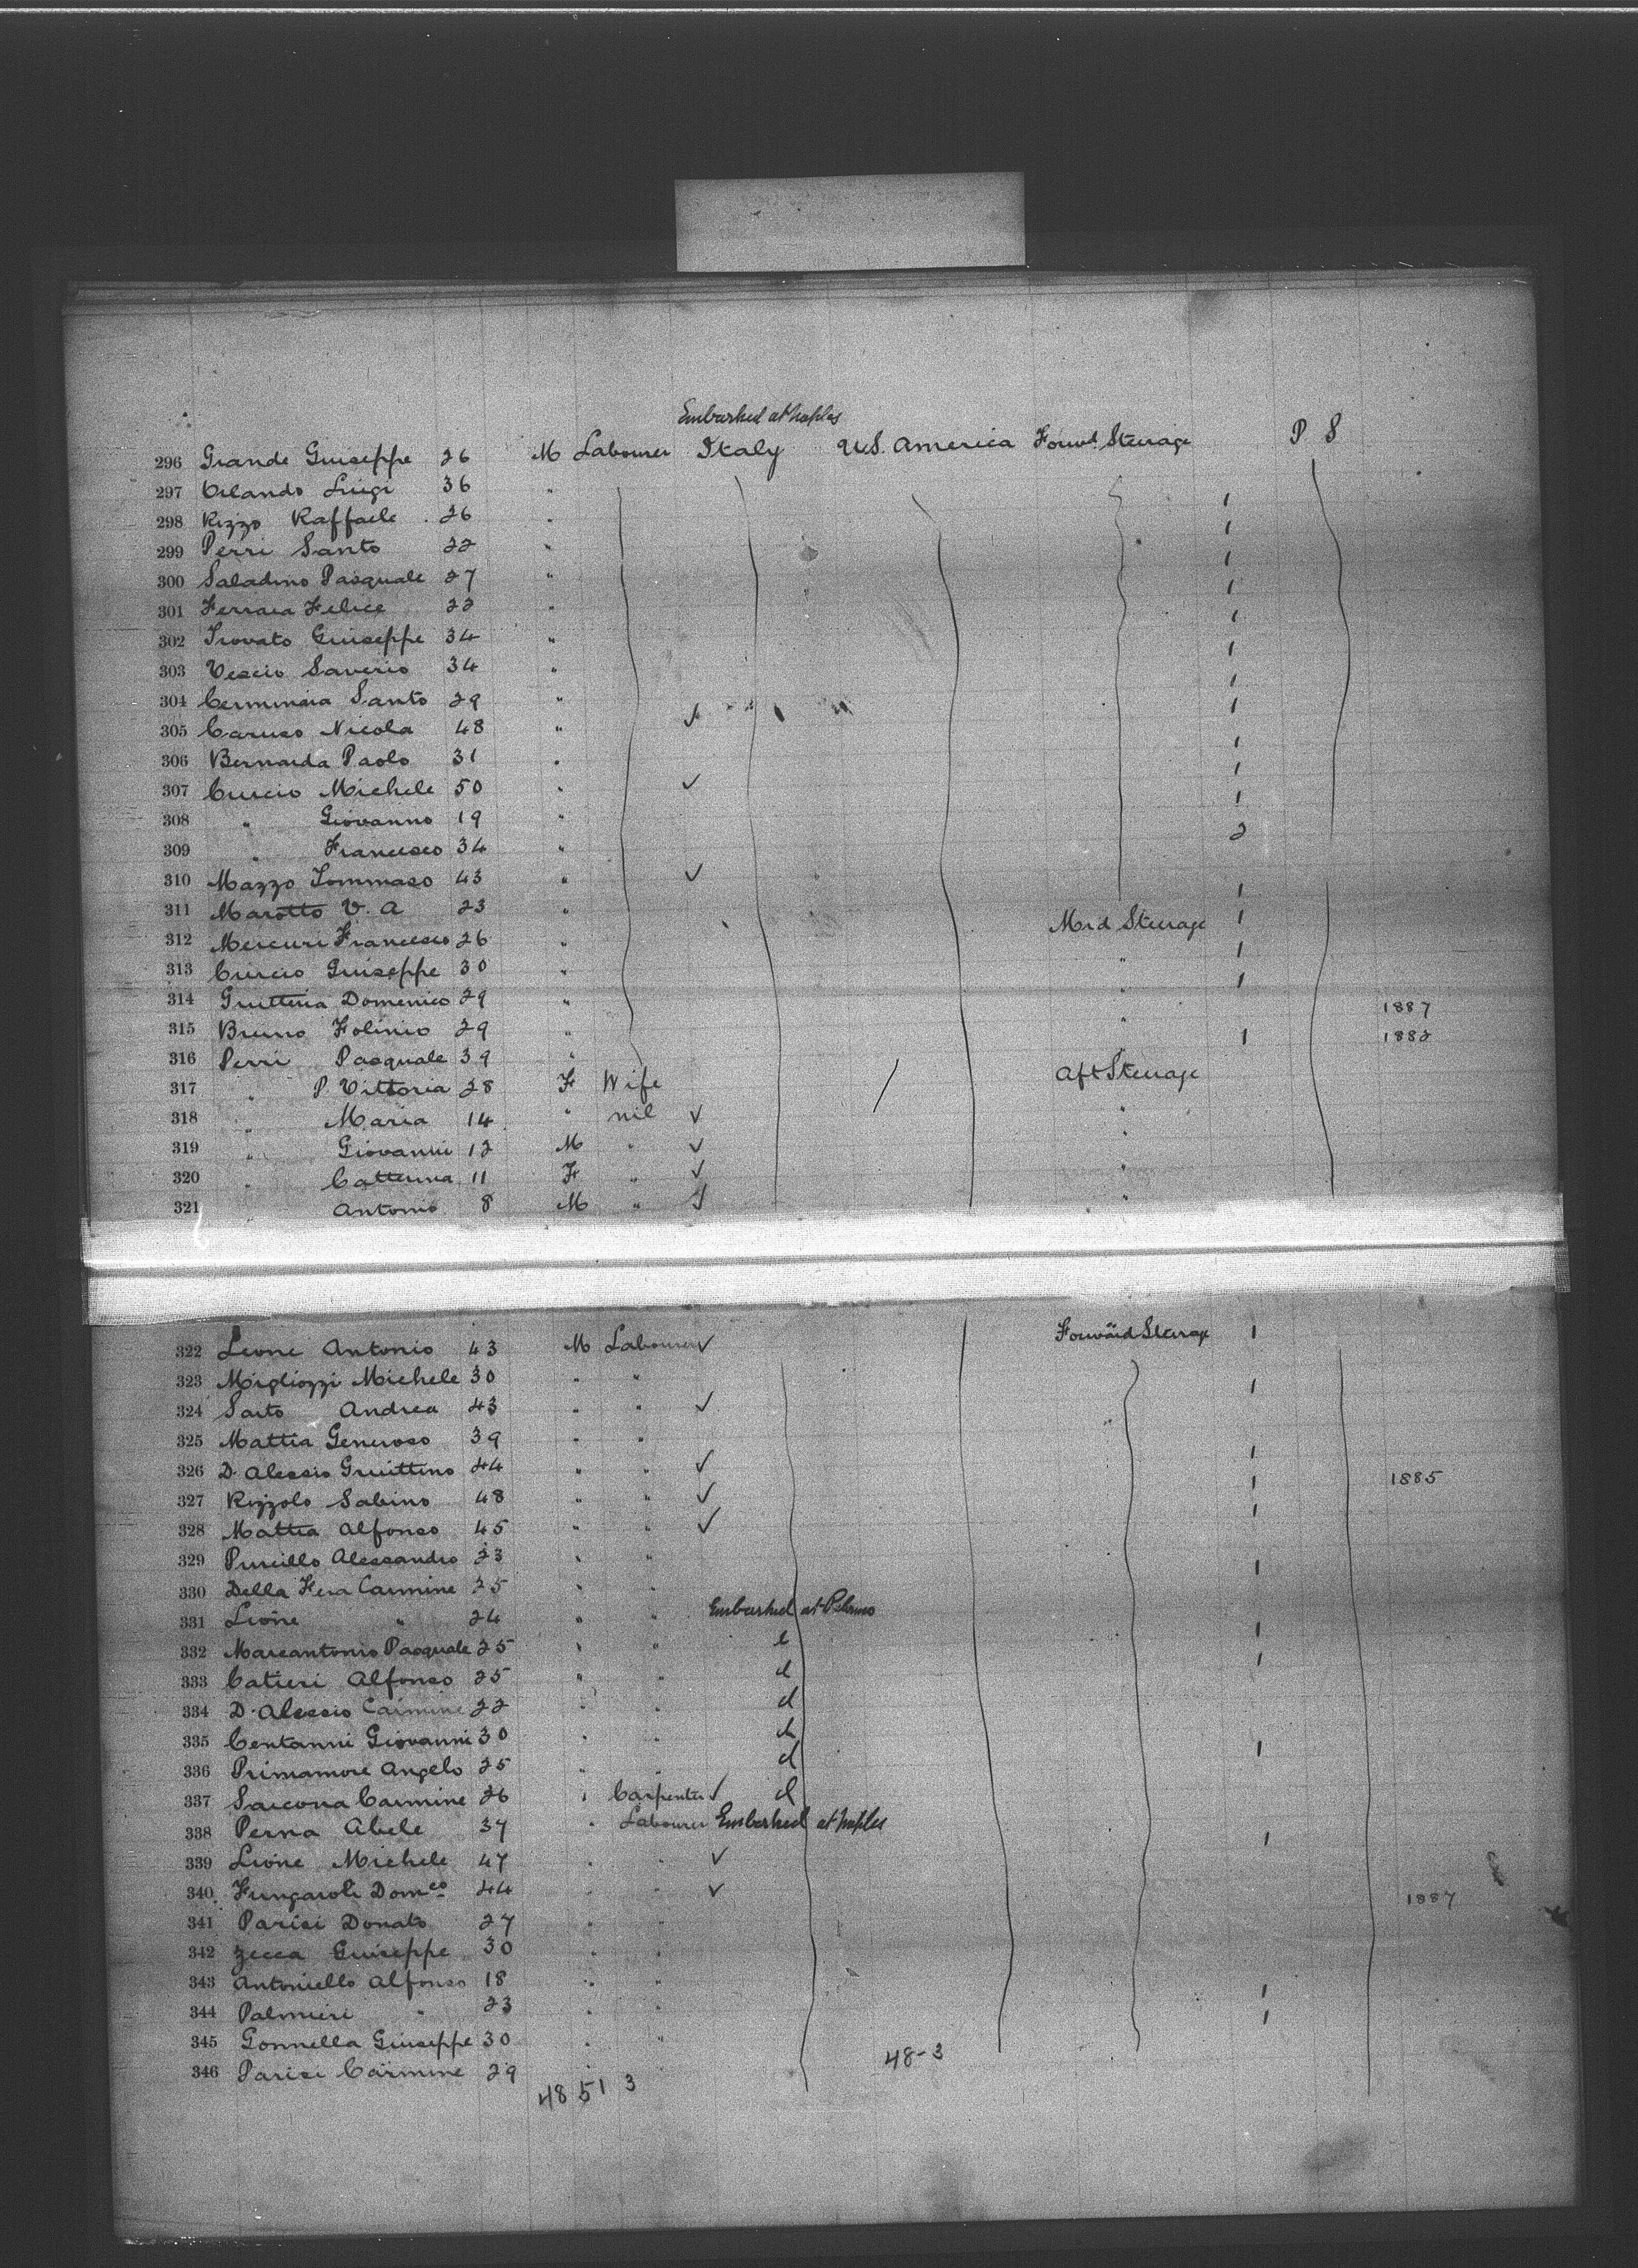 Embarked at Naples
296 Grande Giuseppe 26 M Labourer Italy U.S. America Forwd Steerage P S
297 Orlando Luigi 36 "
298 Rizzo Raffaele 26 " 1
299 Perri Santo 22 " 1
300 Saladino Pasquale 27 " 1
301 Ferraia Felice 22 " 1
302 Trovato Giuseppe 34 " 1
303 Vescio Saverio 34 " 1
304 Santo 29 " 1
305 Caruso Nicola 48 " ✓ 1
306 Bernarda Paolo 31 " 1
307 Curcio Michele 50 " ✓ 1
308 " Giovanno 19 " 1
309 " Francesco 34 " 2
310 Mazzo Tommaso 43 " ✓
311 Marotto V. A 23 " Mid Steerage 1
312 Mercuri Francesco 26 " 1
313 Curcio Giuseppe 30 " " 1
314 Domenico 29 " " 1887
315 Bruno Folinio 29 " " 1 1882
316 Perri Pasquale 39 "
317 " P. Vittoria 28 F Wife Aft Steerage
318 " Maria 14 " nil ✓ "
319 " Giovanni 12 M " ✓ "
320 " Catterina 11 F " ✓ "
321 " Antonio 8 M " ✓ "
322 Leone Antonio 43 M Labourer ✓ Forward Steerage 1
323 Migliozzi Michele 30 " "
324 Saito Andrea 43 " " ✓ 1
325 Mattia Generoso 39 " "
326 D. Alessio Gruittino 44 " " ✓ 1
327 Rizzolo Sabino 48 " " ✓ 1 1885
328 Mattia Alfonso 45 " " ✓ 1
329 Purcillo Alessandro 23 " "
330 Della Fera Carmine 25 " " 1
331 Leone " 24 " " Embarked at Palermo
332 Marcantonio Pasquale 25 " " d 1
333 Catieri Alfonso 25 " " d 1
334 D. Alessio Carmine 22 " " d
335 Centanni Giovanni 30 " " d
336 Primamore Angelo 25 " " d 1
337 Saccona Carmine 26 " Carpenter ✓ d
338 Perna Abele 37 " Labourer Embarked at Naples
339 Leone Michele 47 " " ✓ 1
340 Fungaroli Domco 44 " " ✓ 1887
341 Parisi Donato 27 " "
342 Zecca Giuseppe 30 " "
343 Antoniello Alfonso 18 " "
344 Palmieri " 23 " " 1
345 Gonnella Giuseppe 30 " " 1
346 Parisi Carmine 29 " "
48-3
48 51 3